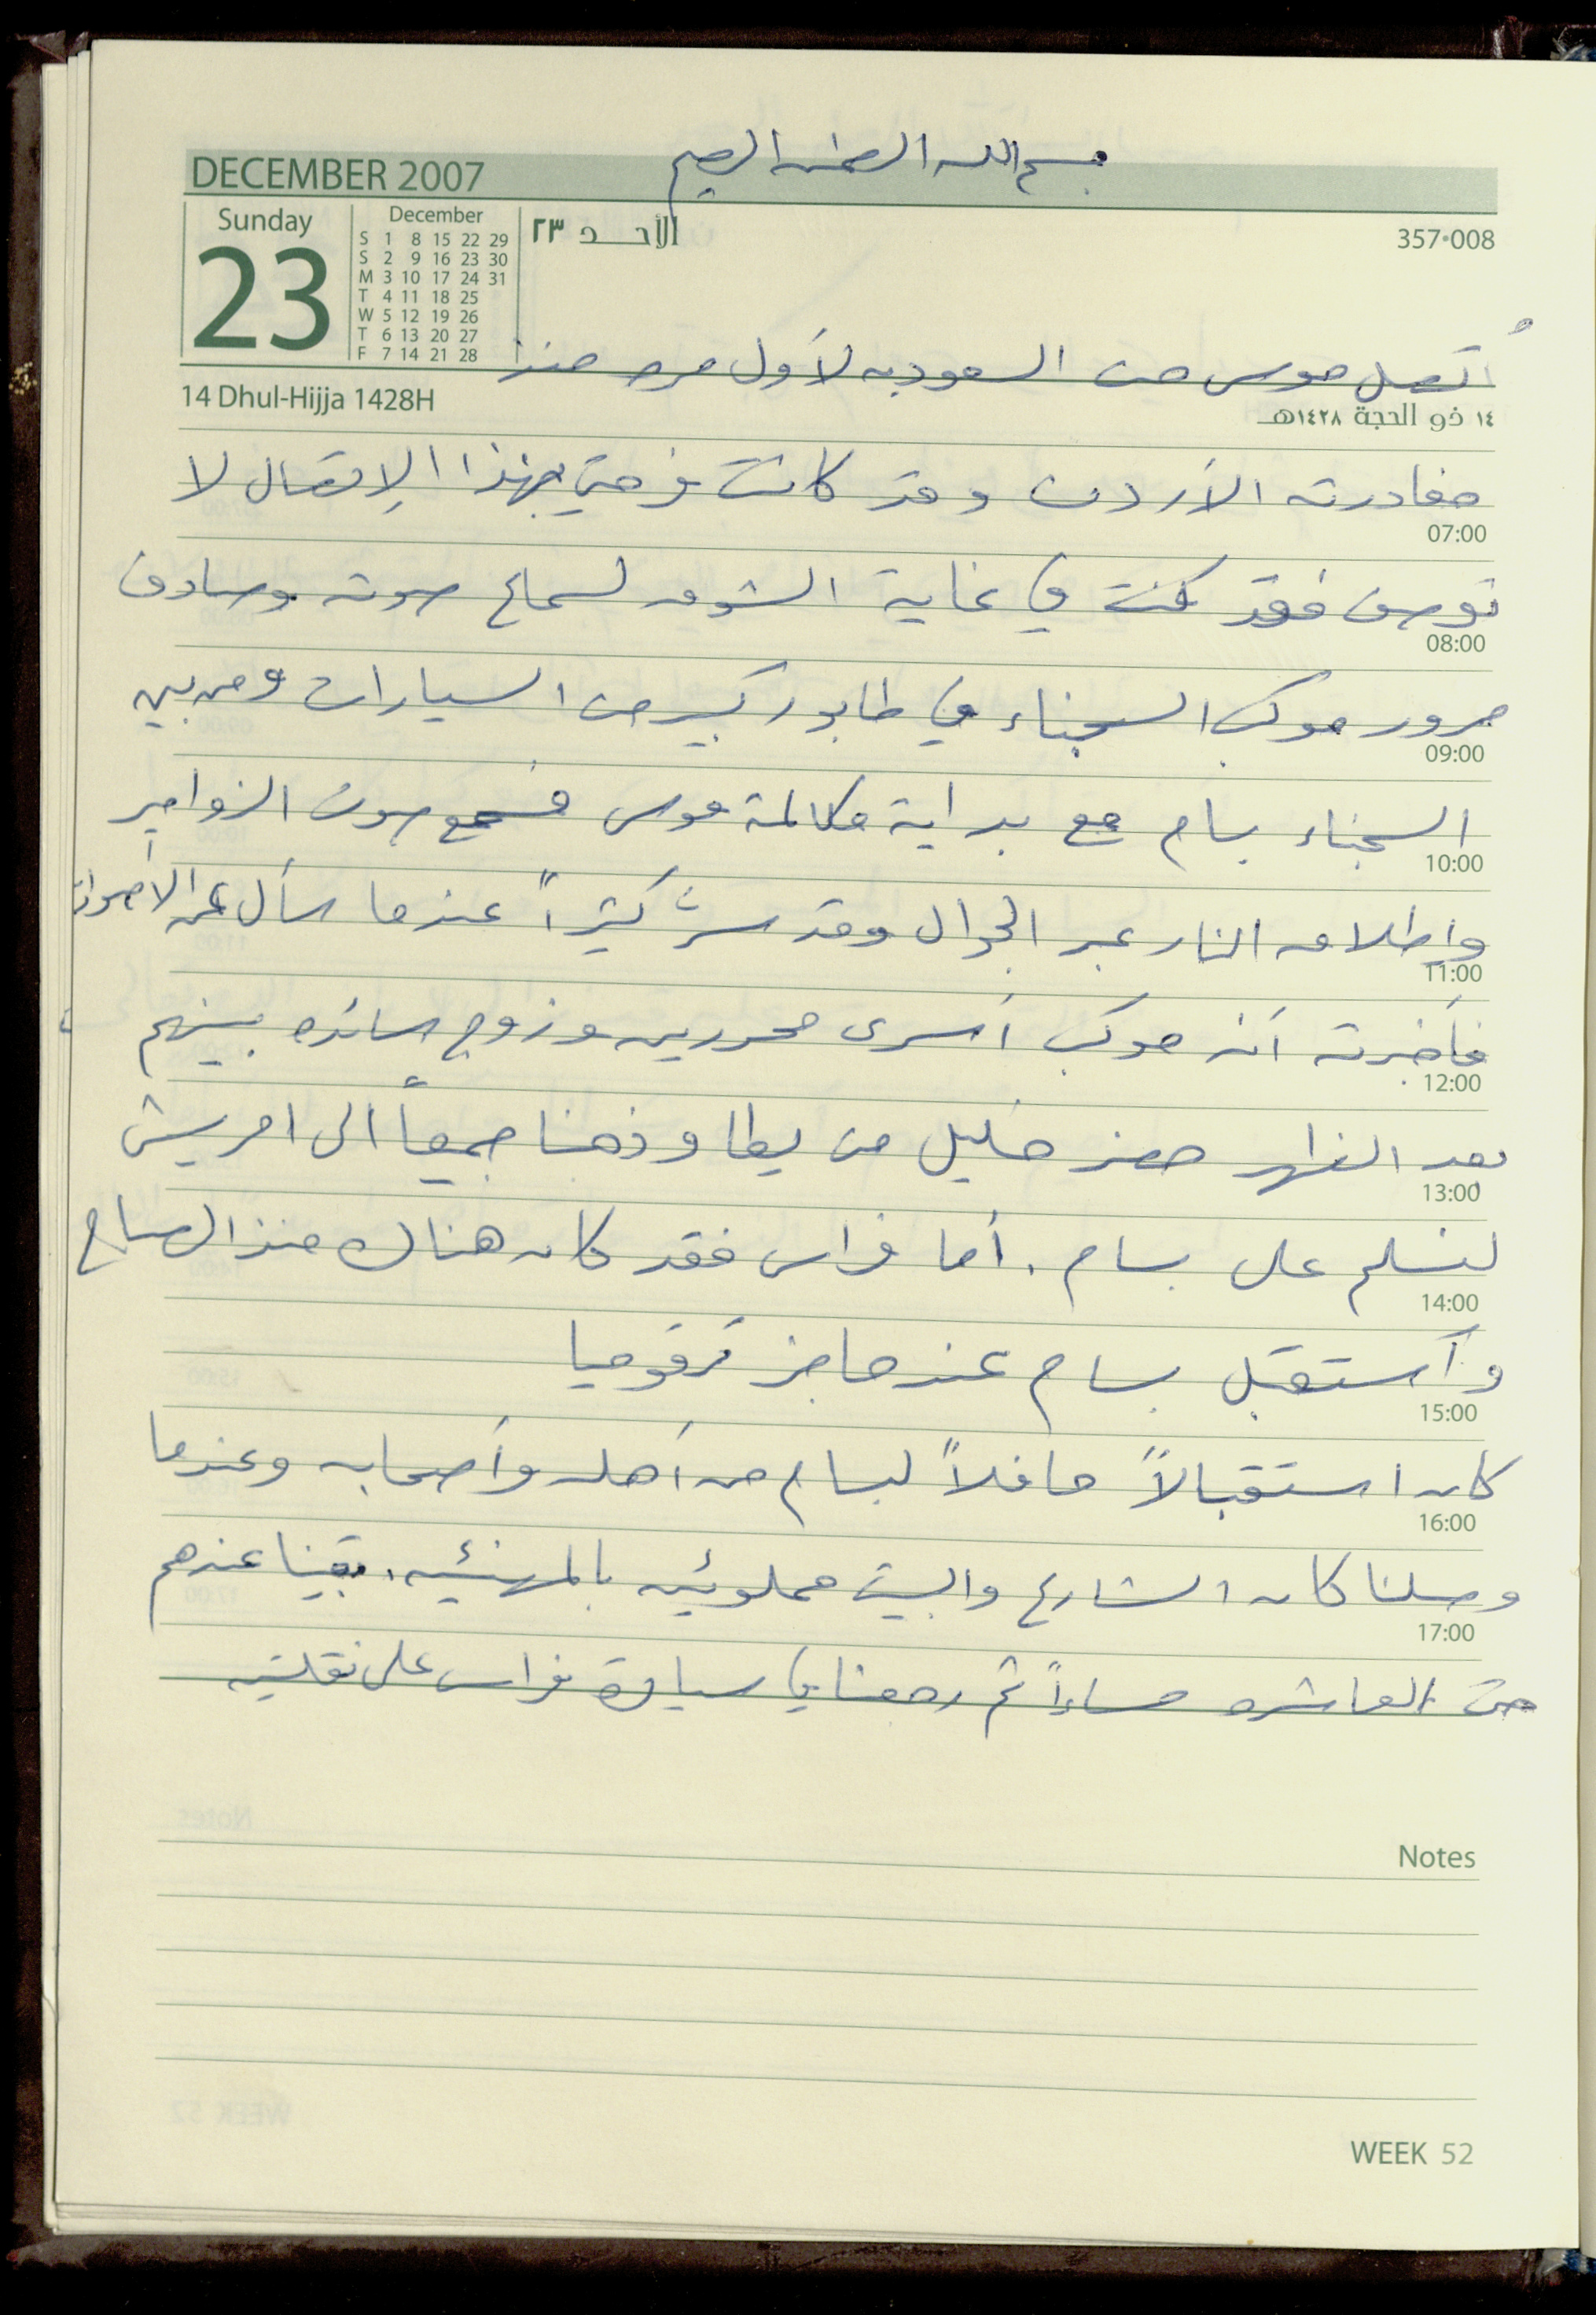 بسم الله الرحمن الرحيم
DECEMBER 2007
Sunday
23
December
S 1 8 15 22 29
S 2 9 16 23 30
M 3 10 17 24 31
T 4 11 18 25
W 5 12 19 26
T 6 13 20 27
F 7 14 21 28
الأحد ٢٣
357•008
أتصل موسى من السعوديه لأول مره منذ
14 Dhul-Hijja 1428H
١٤ ذو الحجة ١٤٢٨هـ
مغادرته الأردن وقد كانت فرحتي بهذا الإتصال لا
07:00
توصف فقد كنت في غاية الشوق لسماع صوته وصادف
08:00
مرور موكب السجناء في طابور كبير من السيارات ومن بين
09:00
السجناء بسام مع بداية مكالمة موسى فسمع صوت الزوامير
10:00
وإطلاق النار عبر الجوال وقد سر كثيراً عندما سأل عن الأصوات
11:00
فأخبرته أنه موكب أسرى محررين وزوج سائده بينهم
12:00
بعد الظهر حضر خليل من يطا وذهبنا جميعاً الى امريش
13:00
لنسلم على بسام. أما فراس فقد كان هناك منذ الصباح
14:00
وأستقبل بسام عند حاجز ترقوميا
15:00
كان استقبالاً حافلاً لبسام من أهله وأصحابه وعندما
16:00
وصلنا كان الشارع والبيت مملوئين بالمهنئين. بقينا عندهم
17:00
حتى العاشره مساءاً ثم رجعنا في سيارة فراس على نقلتين
Notes
WEEK 52